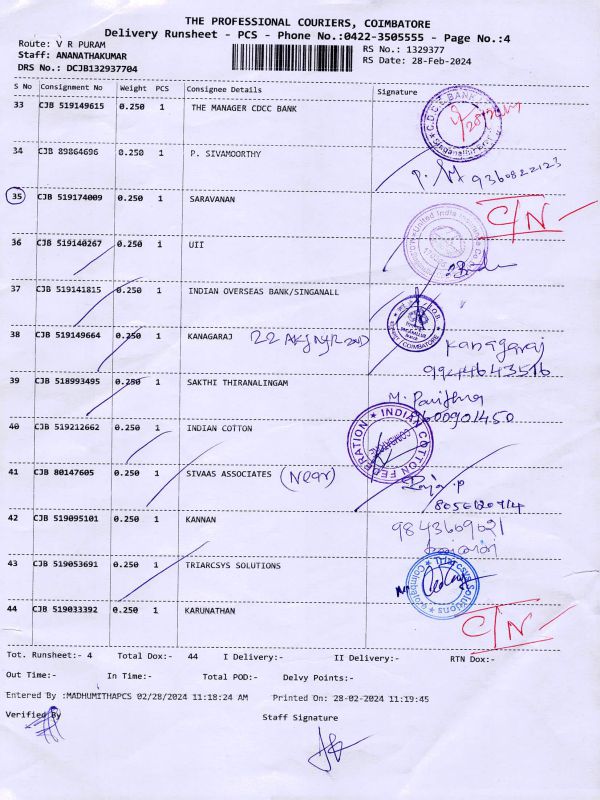 THE PROFESSIONAL COURIERS, COIMBATORE
Delivery Runsheet - PCS - Phone No.:0422-3505555 - Page No.:4
Route: V R PURAM
Staff: ANANATHAKUMAR
DRS No.: DCJB132937704
RS No.: 1329377
RS Date: 28-Feb-2024
S No Consignment No Weight PCS Consignee Details Signature
33 CJB 519149615 0.250 1 THE MANAGER CDCC BANK
C.D.C.C. BANK
34 CJB 89864696 0.250 1 P. SIVAMOORTHY
9360822123
35 CJB 519174009 0.250 1 SARAVANAN C/N
36 CJB 519140267 0.250 1 UII
United India Insurance Co
37 CJB 519141815 0.250 1 INDIAN OVERSEAS BANK/SINGANALL
38 CJB 519149664 0.250 1 KANAGARAJ
COIMBATORE
Kanagaraj
9944643516
39 CJB 518993495 0.250 1 SAKTHI THIRANALINGAM
9600901450
40 CJB 519212662 0.250 1 INDIAN COTTON
INDIAN COTTON FEDERATION
41 CJB 80147605 0.250 1 SIVAAS ASSOCIATES (Near)
Raja.P
42 CJB 519095101 0.250 1 KANNAN
9843609021
43 CJB 519053691 0.250 1 TRIARCSYS SOLUTIONS
Triarcsys Solutions Coimbatore
44 CJB 519033392 0.250 1 KARUNATHAN C/N
Tot. Runsheet:- 4 Total Dox:- 44 I Delivery:- II Delivery:- RTN Dox:-
Out Time:- In Time:- Total POD:- Delvy Points:-
Entered By :MADHUMITHAPCS 02/28/2024 11:18:24 AM Printed On: 28-02-2024 11:19:45
Verified By Staff Signature